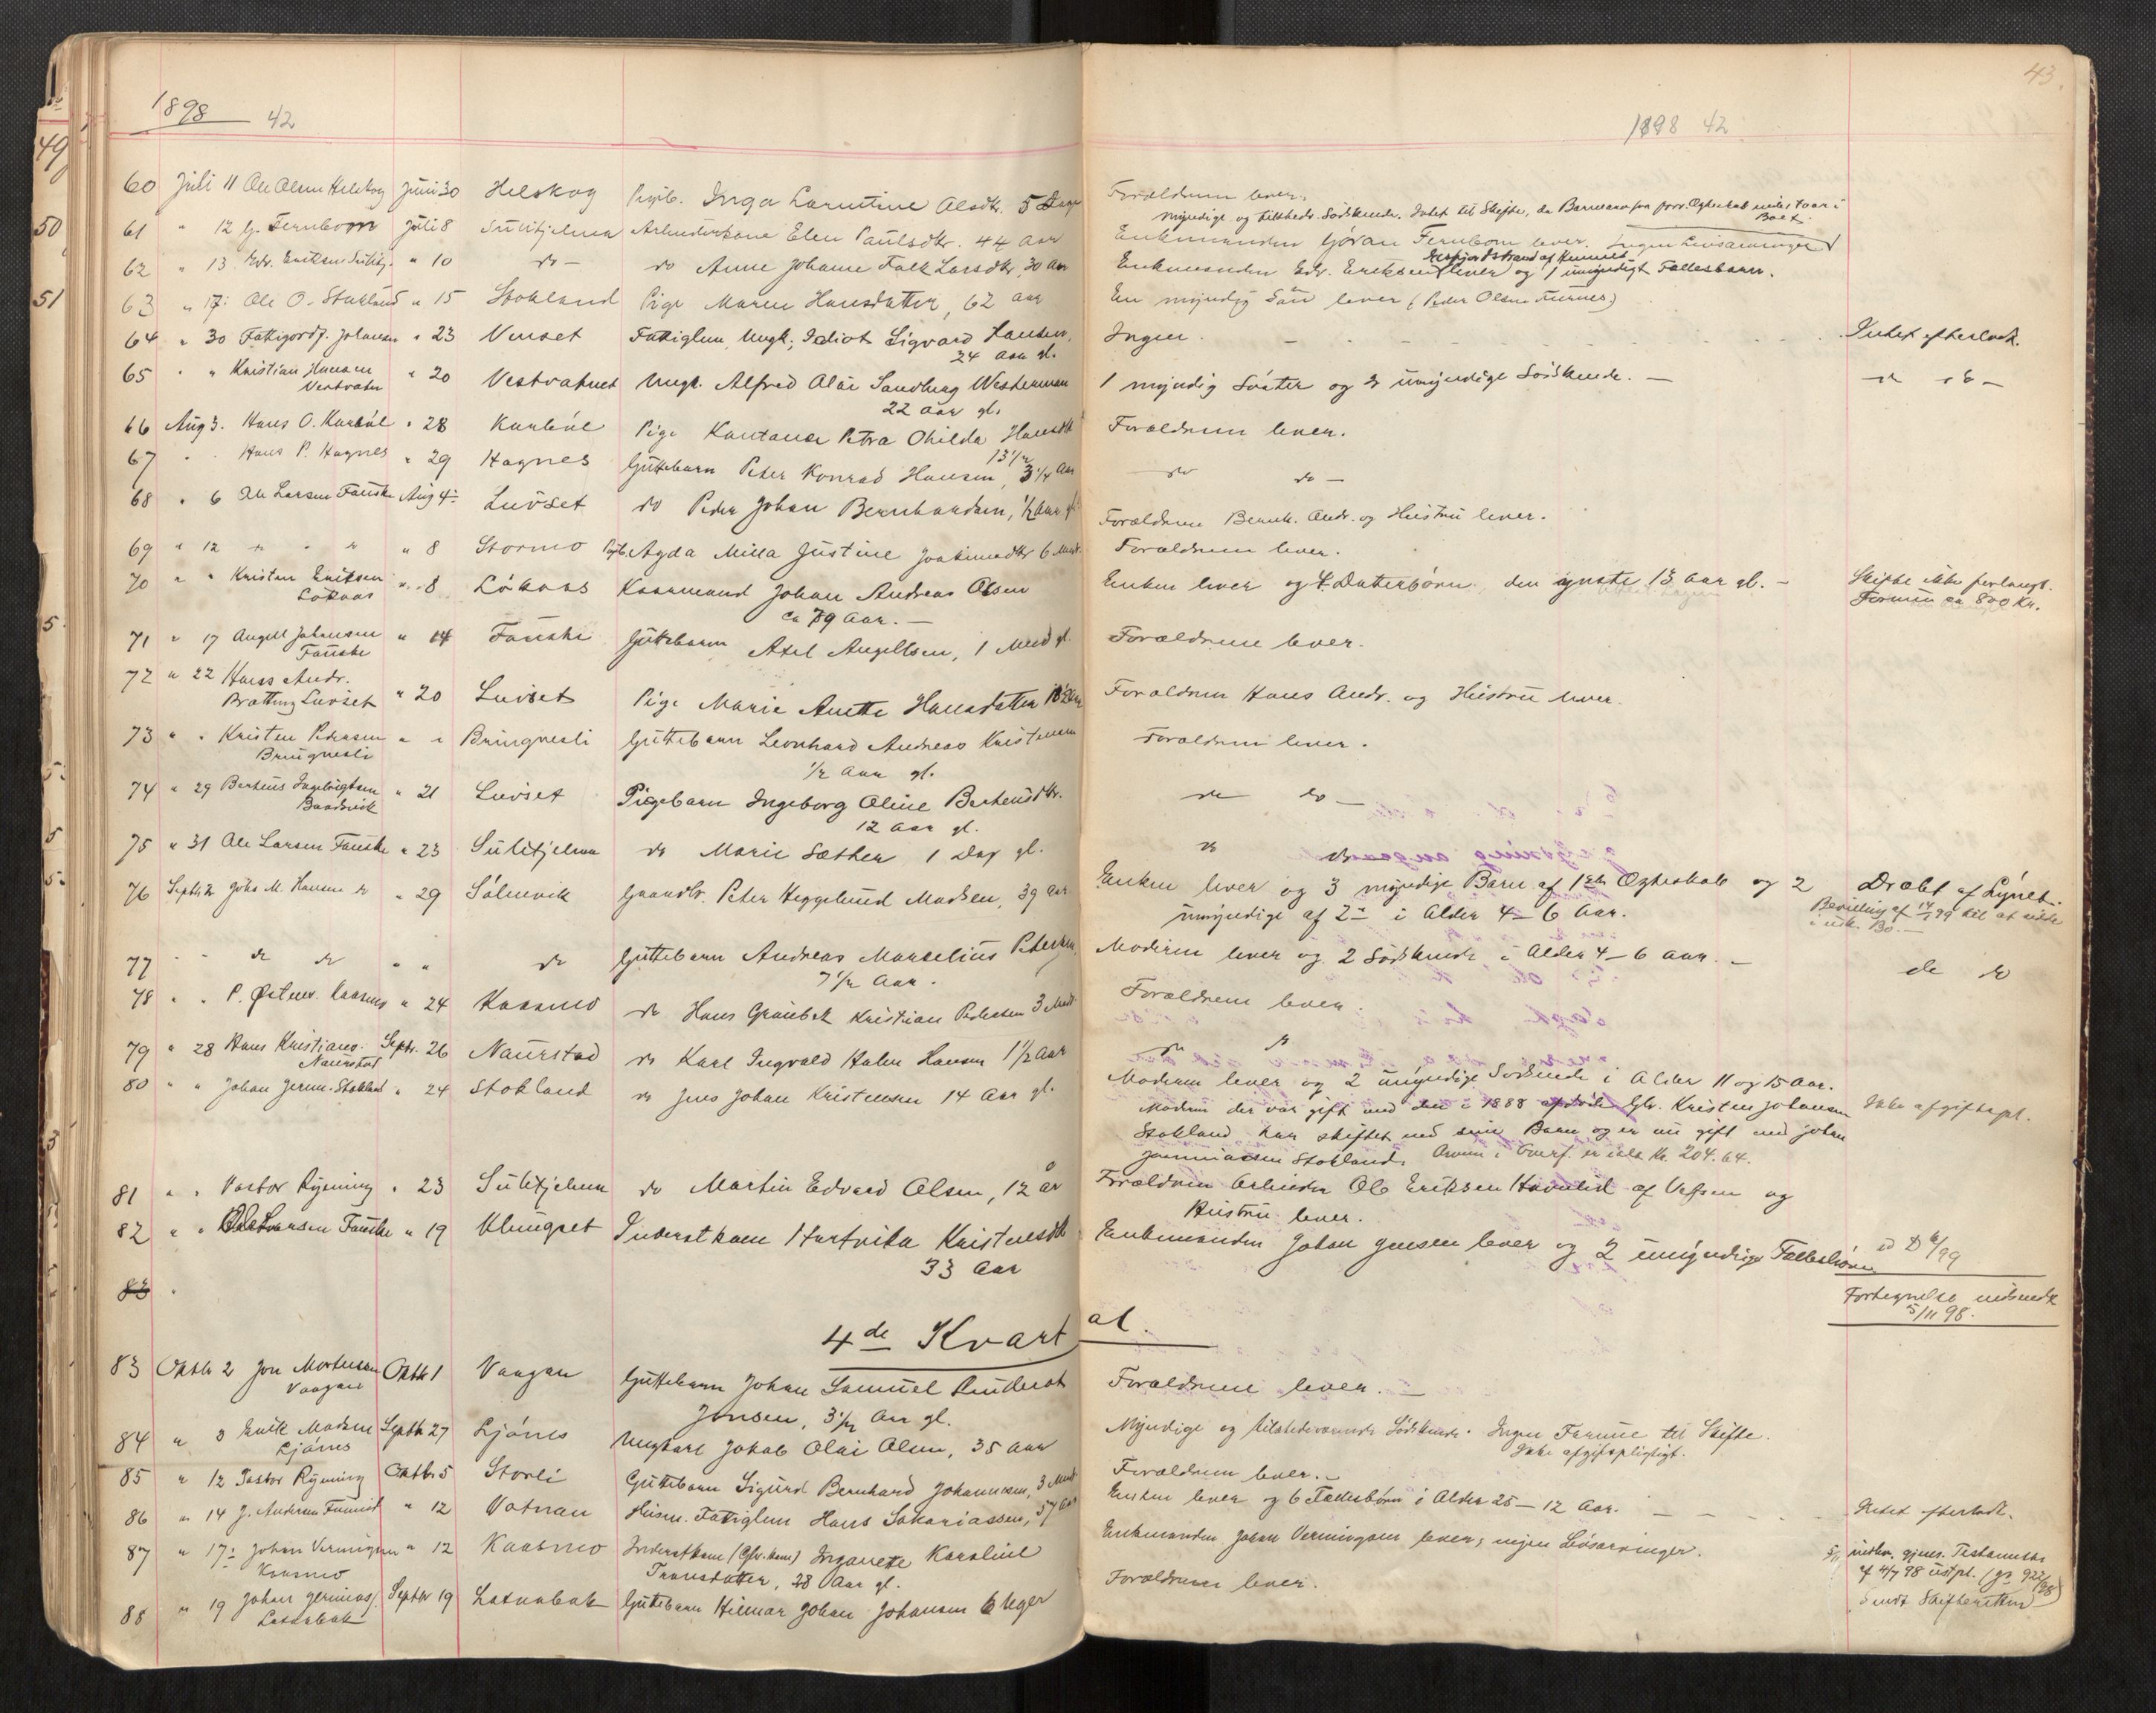 1898 42
60 Juli 11 Ole Olsen Helskog Juni 30 Helskog Pigeb. Inga Larntine Olsdtr. 5 Dage
61 " 12 G. Fernbom Juli 8 Sulitjelma Arbeiderkone Elen Paulsdtr. 44 Aar
62 " 13 Edv. Eriksen " 10 do - do Anne Johanne Falk Larsdtr, 30 Aar
63 " 17 Ole O. Stokland " 15 Stokland Pige Maren Hansdatter, 62 Aar
64 " 30 Fattigordf. Johansen " 23 Venset Fattiglem, Ungk., Idiot Sigvard Hansen,
24 Aar gl.
65 " " Kristian Hansen " 20 Vestvatnet Ungk. Alfred Olai Sandberg Westerman
Vestvatn 22 Aar gl.
66 Aug 3. Hans O. Karbøl " 28 Karbøl Pige Kantanse Petra Ohilda Hansdtr
13 1/2
67 " " Hans P. Hagnes " 29 Hagnes Guttebarn Peter Konrad Hansen, 3 1/4 Aar
68 " 6 Ole Larsen Fauske Aug 4 Luvset do Peder Johan Bernhardsen, 1/2 Aar gl.
69 " 12 do " do " 8 Stormo Pigeb. Agda Milla Justine Joakimsdtr 6 Mnd.
70 " " Kristen Eriksen " 8 Løkaas Kaarmand Johan Andreas Olsen
Løkaas ca 79 Aar. -
71 " 17 Angell Johansen " 14 Fauske Guttebarn Axel Angellsen, 1 Mnd gl.
Fauske
72 " 22 Hans Andr.
Bratteng Luvset " 20 Luvset Pige Marie Anette Hansdatter
73 " " Kristen Pedersen " " Bringsli Guttebarn Leonhard Andreas Kristensen
1/2 Aar gl.
74 " 29 Berteus Ingebrigtsen " 21 Luvset Pigebarn Ingeborg Oline Berteusdtr.
Baadsvik 12 Aar gl.
75 " 31 Ole Larsen Fauske " 23 Sulitjelma do Marie Sæther 1 Dag gl.
76 Septb 2 Johs M. Hansen do " 29 Sølenvik Gaardbr. Peter Heggelund Madsen, 39 Aar
77 " " do do " " do Guttebarn Andreas Marselius Petersen,
7 1/2 Aar.
78 " " P. Østens. Kaasmo " 24 Kaasmo do Hans Grønbek Kristian Pedersen 3 Mnd.
79 " 28 Hans Kristians. Septr. 26 Naurstad do Karl Ingvald Halm Hansen 1 1/2 Aar
Naurstad
80 " " Johan Jerem. Stokland " 24 Stokland do Jens Johan Kristensen 14 Aar gl.
81 " " Pastor Rynning " 23 Sulitjelma do Martin Edvard Olsen, 12 år
82 " " Ole Larsen Fauske " 19 Klungset Inderstkone Hartvika Kristensdtr
33 Aar
83
4de Kvartal.
83 Oktbr 2 Jon Mortensen Oktbr 1 Vaagan Guttebarn Johan Samuel Rinderat
Vaagan Jonsen, 3 1/2 Aar gl.
84 " 3 Erik Madsen Septbr 27 Ljønes Ungkarl Jakob Olai Olsen, 35 Aar
Ljønes
85 " 12 Pastor Rynning Oktbr. 5 Storli Guttebarn Sigurd Bernhard Johannesen, 3 Mnd.
86 " 14 J. Andersen " 12 Vatnan Husm. Fattiglem Hans Sakariassen, 57 Aar
87 " 17 Johan " 12 Kaasmo Inderstkone (Gbr.kone) Inganete Karoline
Kaasmo Transdatter, 28 Aar gl.
88 " 19 Johan Jerimias. Septbr 19 Latnabak Guttebarn Hilmar Johan Johansen 6 Uger
Latnabak
43.
1898 42
Forældrene lever.
Myndige og tilstedv. Sødskende. Intet til Skifte, da
Boet.
Enkemanden Gøran Fernbom lever. Ingen Livsarvinger
Enkemanden Edv. Eriksen lever og 1 umyndigt Fællesbarn.
En myndig Søn lever (Peder Olsen Furnes)
Ingen. - - - - Intet efterladt.
1 myndig Søster og 2 umyndige Sødskende. - do do -
Forældrene lever.
do do -
Forældrene Bernh. Andr. og Hustru lever.
Forældrene lever.
Enken lever og 4 Døtterbørn, den yngste 13 Aar gl. - Skifte ikke forlangt.
Formue ca 800 Kr.
Forældrene lever.
Forældrene Hans Andr. og Hustru lever.
Forældrene lever.
do do -
do do
Enken lever og 3 myndige Børn af 1ste Ægteskab og 2 Dræbt af Lynet.
umyndige af 2det i Alder 4-6 Aar. Bevilling af 14/1 99 til at sidde
i usk. Bo. -
Moderen lever og 2 Sødskende i Alder 4-6 Aar. - do do
Forældrene lever.
do do
Moderen lever og 2 umyndige Sødskende i Alder 11 og 15 Aar.
Moderen der var gift med den i 1888 afdøde Gbr. Kristen Johansen Ikke afgiftspl.
Stokland har skiftet med sine Børn og er nu gift med Johan
Jermiassen Stokland. Arven i Overf. er ialt Kr. 204.64.
Forældrene Arbeider Ole Eriksen af Vefsen og
Hustru lever.
Enkemanden Johan Jensen lever og 2 umyndige Fællesbørn
Fortegnelse indsendt
5/11 98.
Forældrene lever. -
Myndige og tilstedeværende Sødskende. Ingen Formue til Skifte.
Ikke afgiftspligtigt.
Forældrene lever. -
Enken lever og 6 Fællesbørn i Alder 25-12 Aar. - - - Intet efterladt.
Enkemanden Johan lever, ingen Livsarvinger. 5/11 gjens. Testamente
af 4/7 98
Sendt Skifteretten
Forældrene lever.